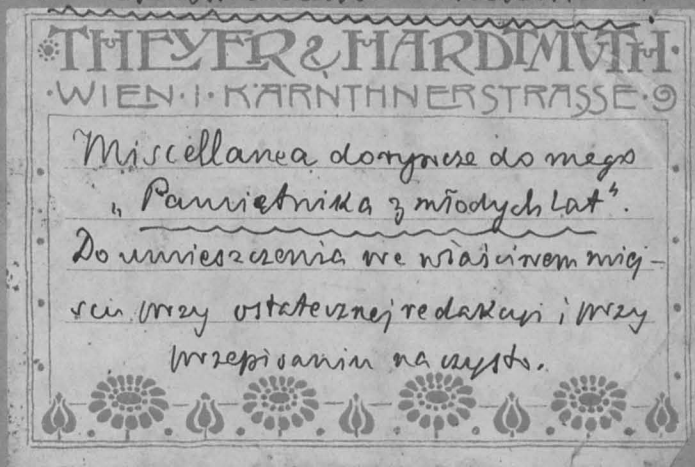 THEYER & HARDTMUTH
WIEN · I · KÄRNTHNERSTRASSE · 9
Miscellanea dorywcze do mego
„Pamiętnika z młodych lat”.
Do umieszczenia we właściwem miej-
scu przy ostatecznej redakcyi i przy
przepisaniu na czysto.